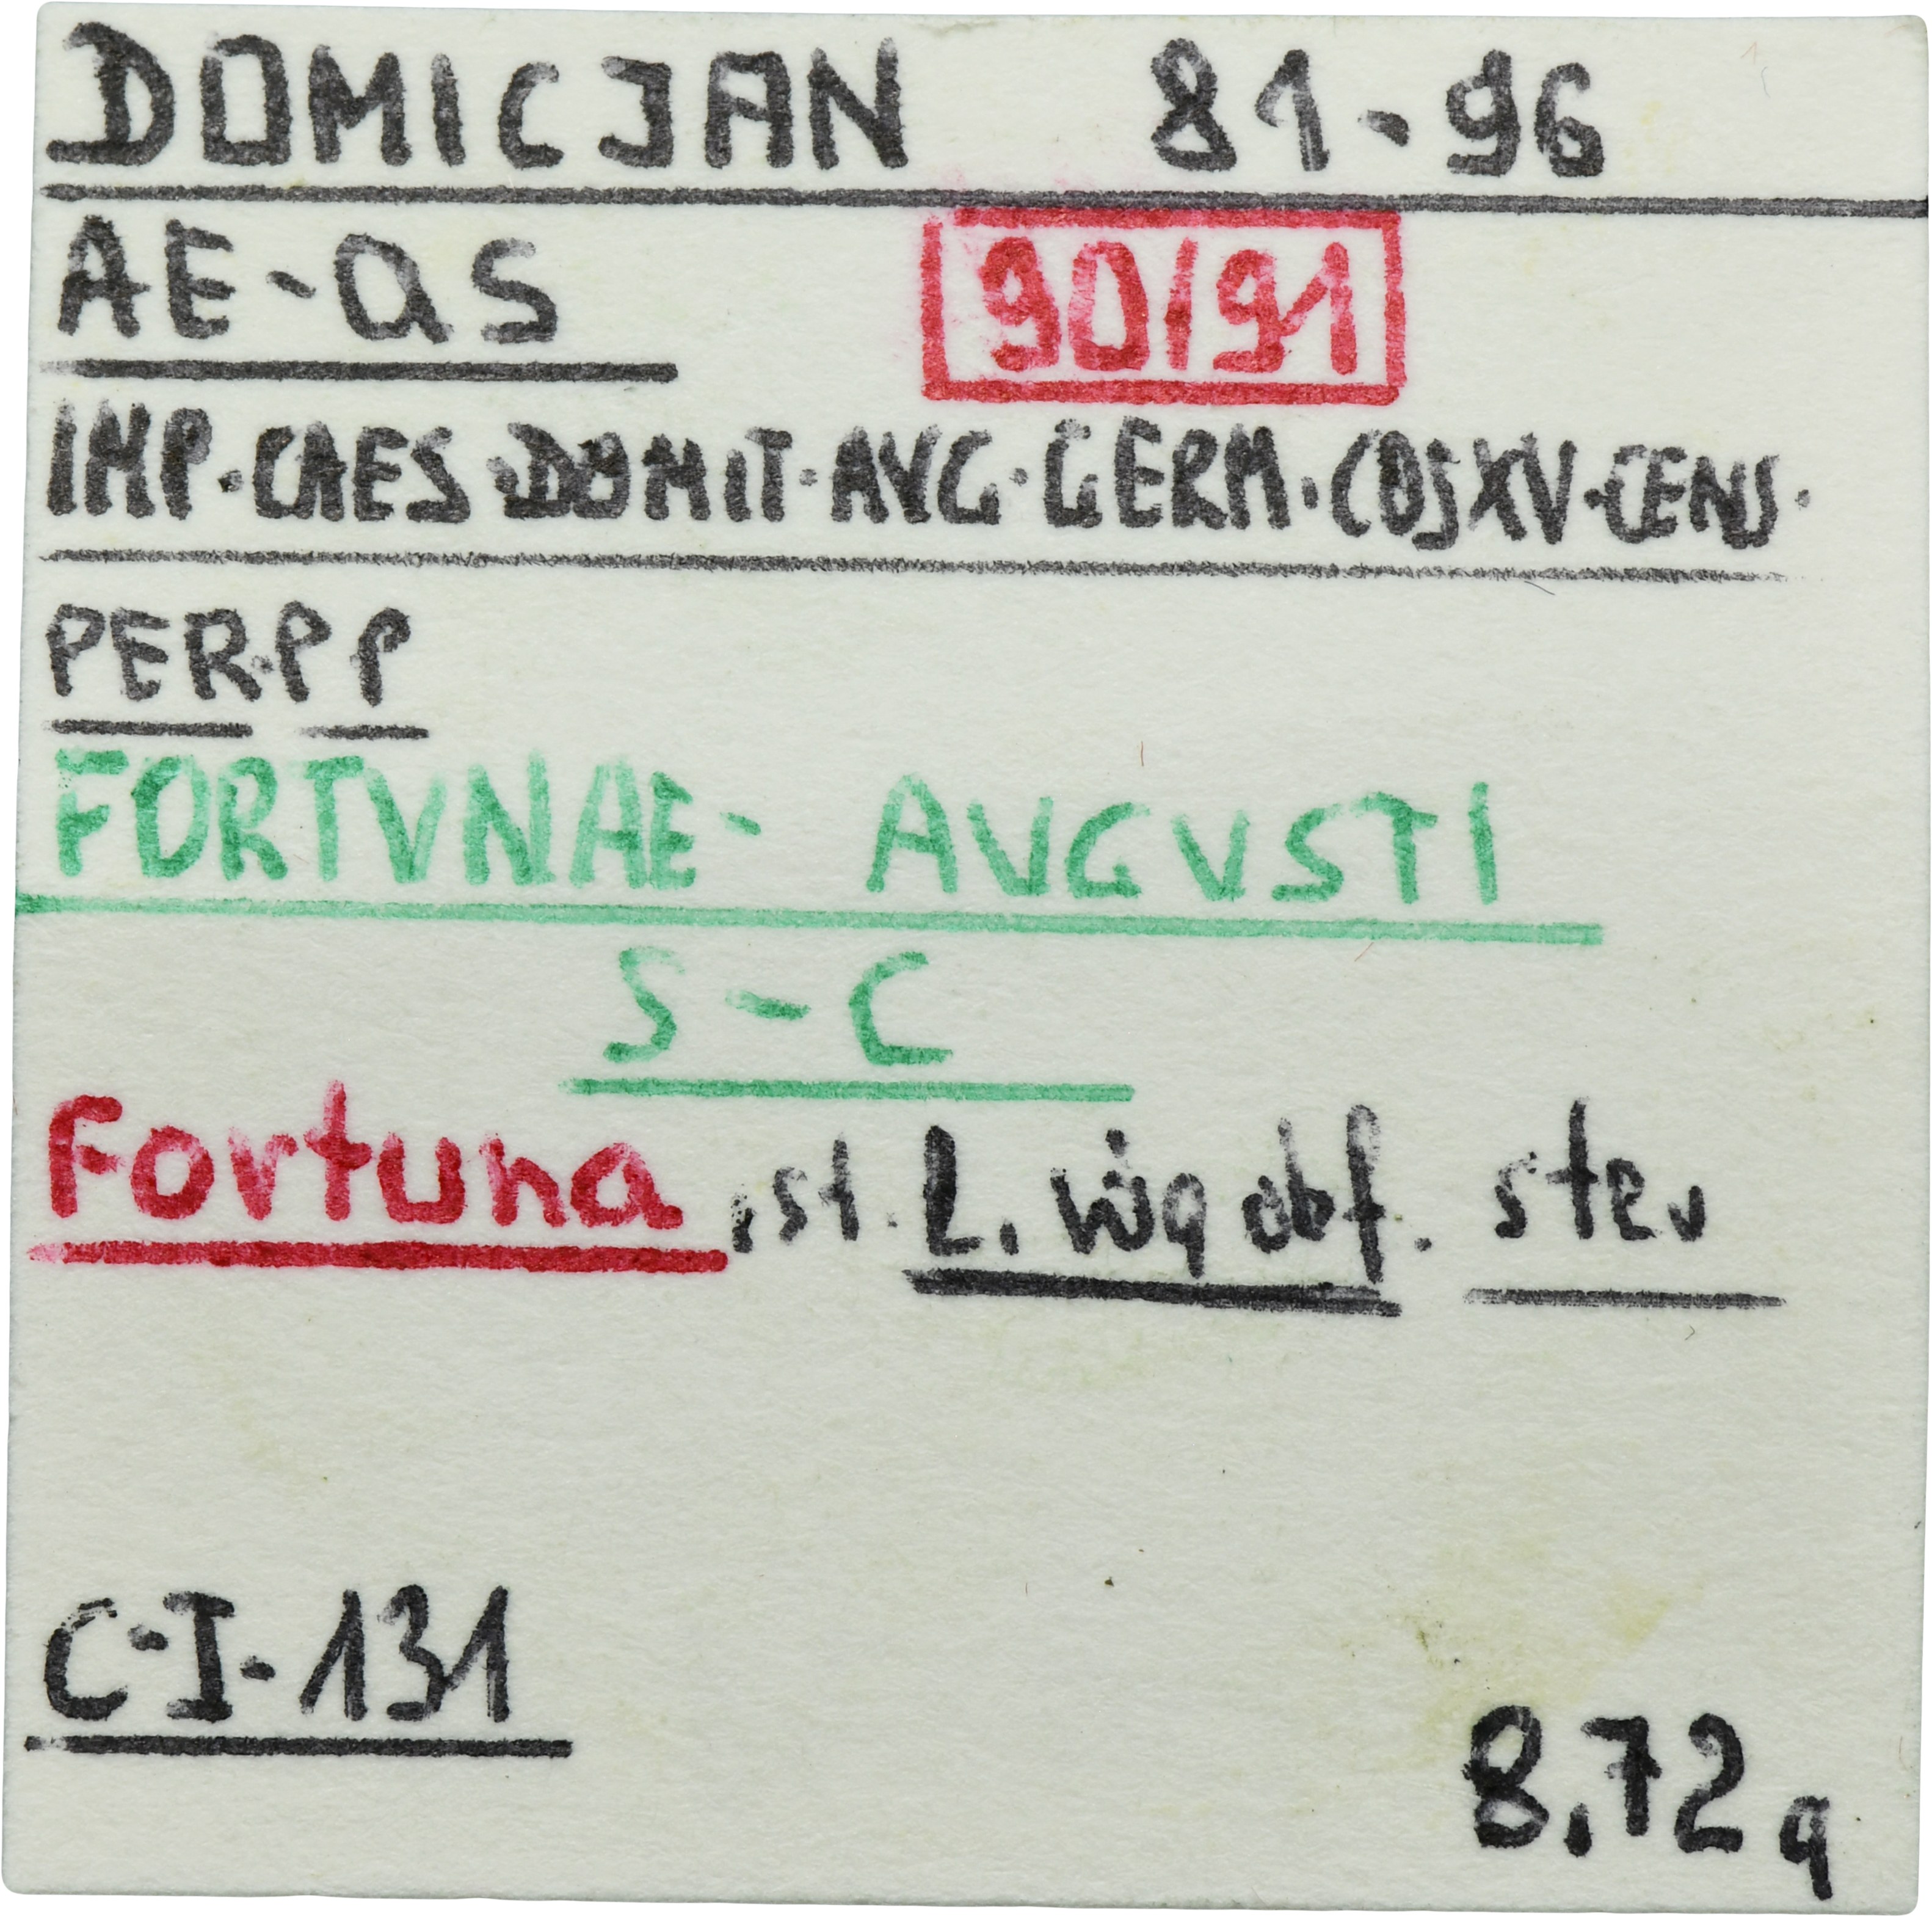 DOMICJAN 81-96
AE-as 90/91
IMP·CAES·DOMIT·AVG·GERM·COSXV·CENS·
PER·P P
FORTVNAE- AVGVSTI
S-C
Fortuna, st. L. róg obf. ster
C-I-131
8,72g